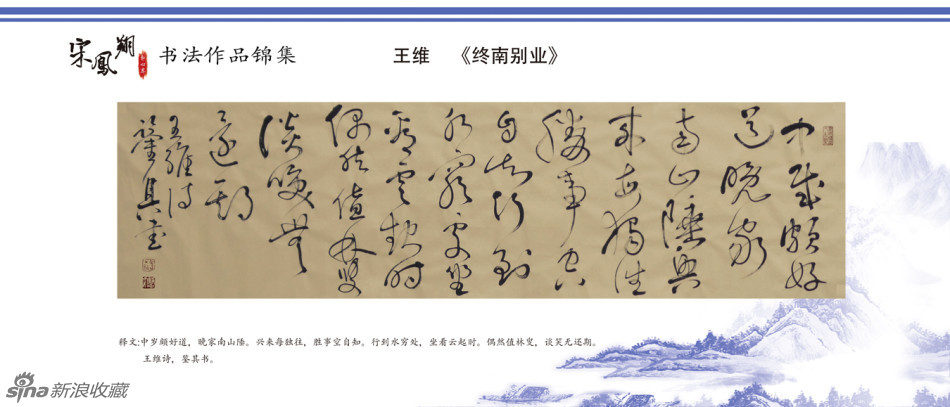 宋鳳翔 书法作品锦集
王维 《终南别业》
中歲頗好
道晚家
南山陲興
來每獨往
勝事空
自知行到
水窮處坐
看雲起時
偶然值林叟
談笑無
還期
王維詩
鋆其書
释文:中岁颇好道，晚家南山陲。兴来每独往，胜事空自知。行到水穷处，坐看云起时。偶然值林叟，谈笑无还期。
王维诗，鋆其书。
sina新浪收藏